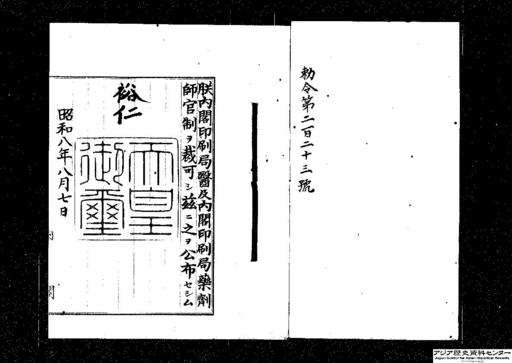 勅令第二百二十三號
朕内閣印刷局醫及内閣印刷局藥劑
師官制ヲ裁可シ茲ニ之ヲ公布セシム
裕仁
天皇御璽
昭和八年八月七日
内閣
アジア歴史資料センター
Japan Center for Asian Historical Records